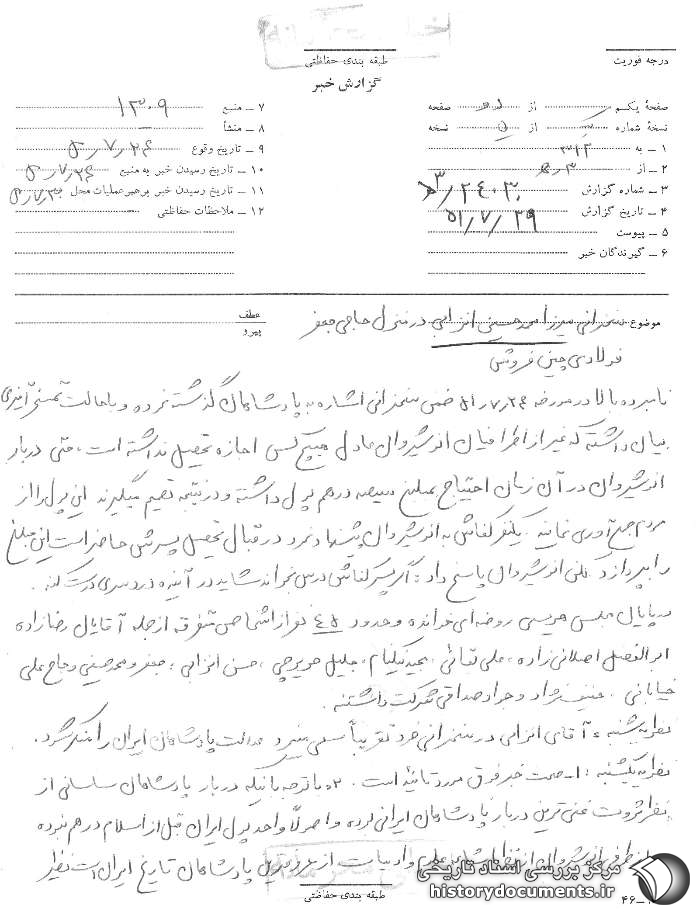 درجه فوریت
طبقه بندی حفاظتی
گزارش خبر
صفحهٔ یکم از دو صفحه
نسخهٔ شماره از نسخه
۱ ـ به ۳۱۲
۲ ـ از ۳ﻫ
۳ ـ شماره گزارش ۲۴۰۳۰/ﻫ۳
۴ ـ تاریخ گزارش ۵۱/۷/۲۹
۵ ـ پیوست
۶ ـ گیرندگان خبر
۷ ـ منبع ۱۳۰۹
۸ ـ منشأ
۹ ـ تاریخ وقوع ۵۱/۷/۲۴
۱۰ ـ تاریخ رسیدن خبر به منبع ۵۱/۷/۲۴
۱۱ ـ تاریخ رسیدن خبر برهبرعملیات محل
۱۲ ـ ملاحظات حفاظتی
موضوع سخنرانی میرزا محمدحسین انزابی در منزل حاجی جعفر
عطف
پیرو
فولادی چینی فروش
نامبرده بالا در مورخه ۵۱/۷/۲۴ ضمن سخنرانی اشاره به پادشاهان گذشته نموده و با حالت تمسخرآمیزی
بیان داشته که غیر از اطرافیان انوشیروان عادل هیچ کس اجازه تحصیل نداشته است، حتی دربار
انوشیروان در آن زمان احتیاج بمبلغ سیصد درهم پول داشته و در نتیجه تصمیم میگیرند این پول را از
مردم جمع آوری نمایند. یکنفر کفاش به انوشیروان پیشنهاد نمود در قبال تحصیل پسرش حاضر است این مبلغ
را بپردازد ولی انوشیروان پاسخ داد: اگر پسر کفاش درس بخواند شاید در آینده دردسری درست کند.
در پایان مجلس روضه‌ای خوانده و حدود ۴۵ نفر از اشخاص متفرقه از جمله آقایان رضازاده
ابوالفضل اصلانی زاده، علی بنائی، مجید نیکنام، جلیل حریرچی، حسن انزابی، جعفر و محمد حسینی و حاج علی
خیابانی، عفیف نژاد و جواد صداقی شرکت داشتند.
نظریه شنبه: آقای انزابی در سخنرانی خود تقریباً سعی مینمود عدالت پادشاهان ایران را منکر شود.
نظریه یکشنبه: ۱ـ صحت خبر فوق مورد تائید است. ۲ـ با توجه باینکه دربار پادشاهان ساسانی از
نظر ثروت غنی ترین دربار پادشاهان ایرانی بوده و اصولاً واحد پول ایران قبل از اسلام درهم نبوده
از طرفی انوشیروان از نظر علم و ادبیات از پادشاهان تاریخ ایران است نظیر
طبقه بندی حفاظتی
مرکز بررسی اسناد تاریخی
historydocuments.ir